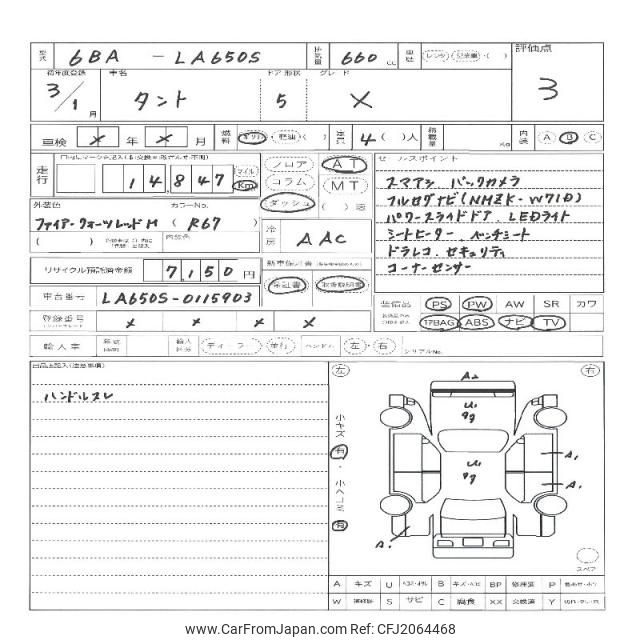 型式 6BA - LA650S 排気量 660 cc 車歴 レンタ
評価点
3
初年度登録 車名 ドア 形状 グレード
3/1 月 タント 5 X
車検 × 年 × 月 燃料 ガソリン 軽油 ( ) 定員 4 ( ) 人 積載量 KG 内装 A B C
走行 14,847 マイル Km
フロア AT
コラム MT
ダッシュ ( ) 速
セールスポイント
スマアシ バックカメラ
フルセグナビ(NHZK-W71D)
パワースライドドア LEDライト
シートヒーター ベンチシート
ドラレコ セキュリティ
コーナーセンサー
外装色 カラーNo.
ファイアークォーツレッドM (R67)
内装色
冷房 AAC
リサイクル預託済金額 7,150 円
保証書 取扱説明書
車台番号 LA650S-0115903
装備品 PS PW AW SR カワ
17BAG ABS ナビ TV
登録番号 × × × ×
輸入車 年式 輸入区分 ディーラー 並行 ハンドル 左・右 シリアルNo.
出品店記入(注意事項)
ハンドルスレ
左 右
小キズ 有 ・ 小ヘコミ 有
A2
U1
キク
U1
キク
A1
A1
A1
スペア
A キズ U B BP 修理済 P
W S サビ C 腐食 XX 交換済 Y
www.CarFromJapan.com CFJ2064468